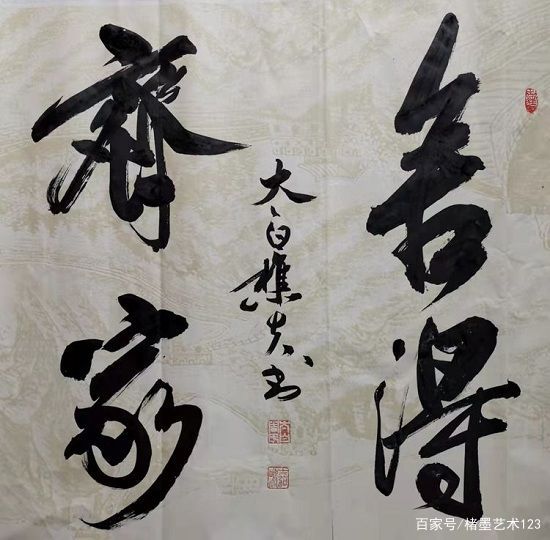 舍得
大白樵夫书
齊家
百家号/楮墨艺术123